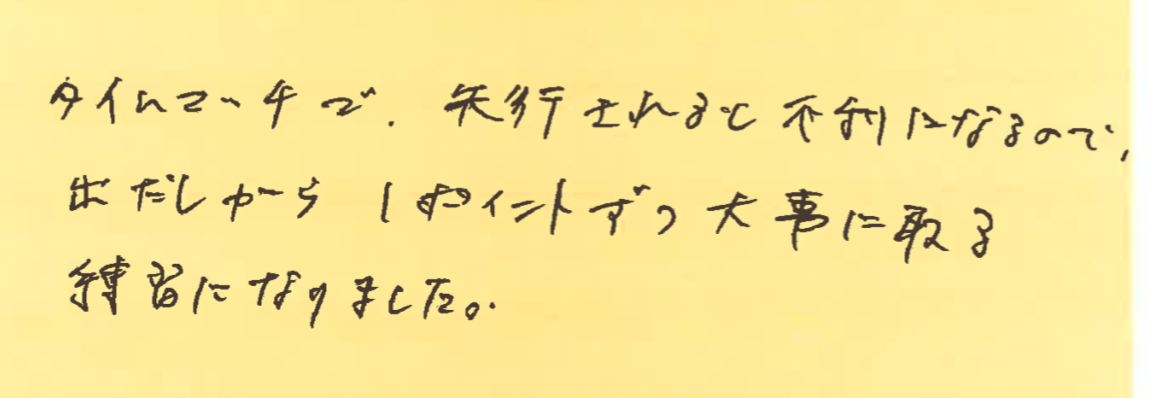 タイムマッチで、先行されると不利になるので、
出だしから1ポイントずつ大事に取る
練習になりました。